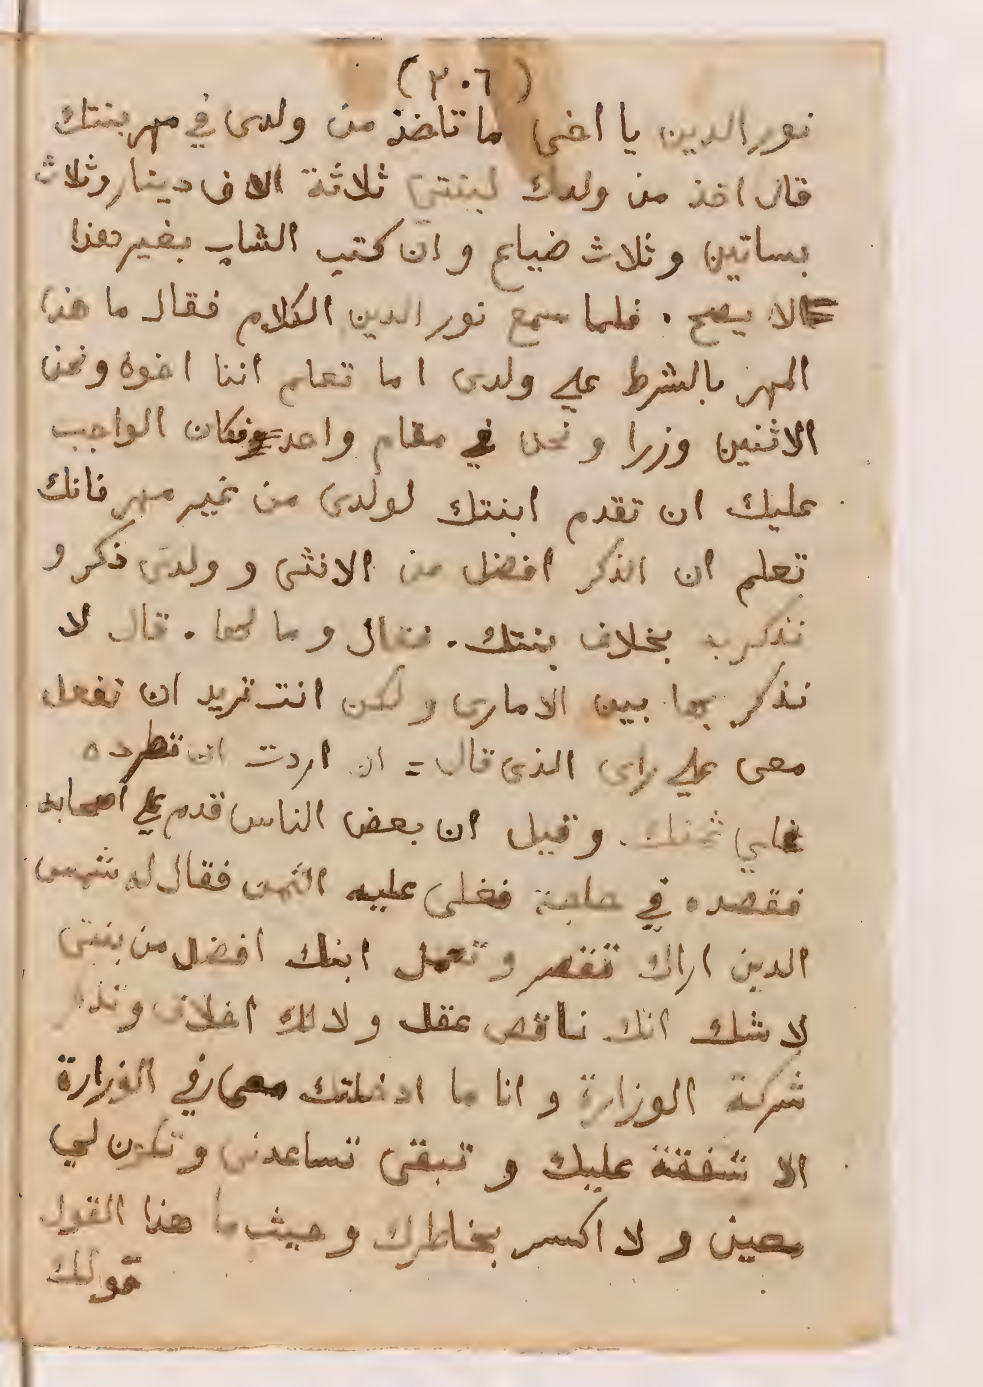 (٣٠٦)
نور الدين يا اخى ما تاخذ من ولدى في مهر بنتك
قال اخذ من ولدك لبنتي ثلاثة الاف دينار وثلاث
بساتين و ثلاث ضياع و ان كتب الشاب بغير هذا
لا يصح . فلما سمع نور الدين الكلام فقال ما هذا
المهر بالشرط على ولدى اما تعلم اننا اخوة و نحن
الاثنين وزرا و نحن في مقام واحد فكان الواجب
عليك ان تقدم ابنتك لولدى من غير مهر فانك
تعلم ان الذكر افضل من الانثى و ولدى ذكر و
نذكر به بخلاف بنتك . فقال و ما لها . قال لا
نذكر بها بين الامارى و لكن انت تريد ان تفعل
معى على راى الذى قال = ان اردت ان تطرده
غلي ثمنك و قيل ان بعض الناس قدم على اصحابه
فقصده في حاجة فغلى عليه الثمن فقال له شمس
الدين اراك تقصر و تعمل ابنك افضل من بنتى
لا شك انك ناقص عقل و لا لك اخلاق و تذكر
شركة الوزارة و انا ما ادخلتك معى في الوزارة
الا شفقة عليك و تبقى تساعدنى و تكون لي
معين و لا اكسر بخاطرك و حيث ما هذا القول
قولك